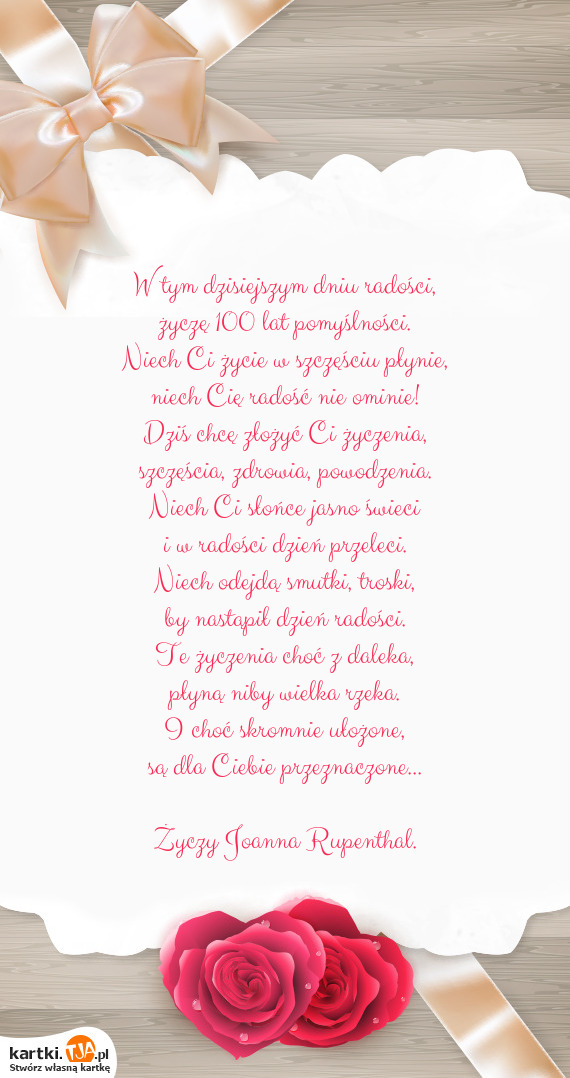 W tym dzisiejszym dniu radości,
życzę 100 lat pomyślności.
Niech Ci życie w szczęściu płynie,
niech Cię radość nie ominie!
Dziś chcę złożyć Ci życzenia,
szczęścia, zdrowia, powodzenia.
Niech Ci słońce jasno świeci
i w radości dzień przeleci.
Niech odejdą smutki, troski,
by nastąpił dzień radości.
Te życzenia choć z daleka,
płyną niby wielka rzeka.
I choć skromnie ułożone,
są dla Ciebie przeznaczone...
Życzy Joanna Rupenthal.
kartki.TJA.pl
Stwórz własną kartkę